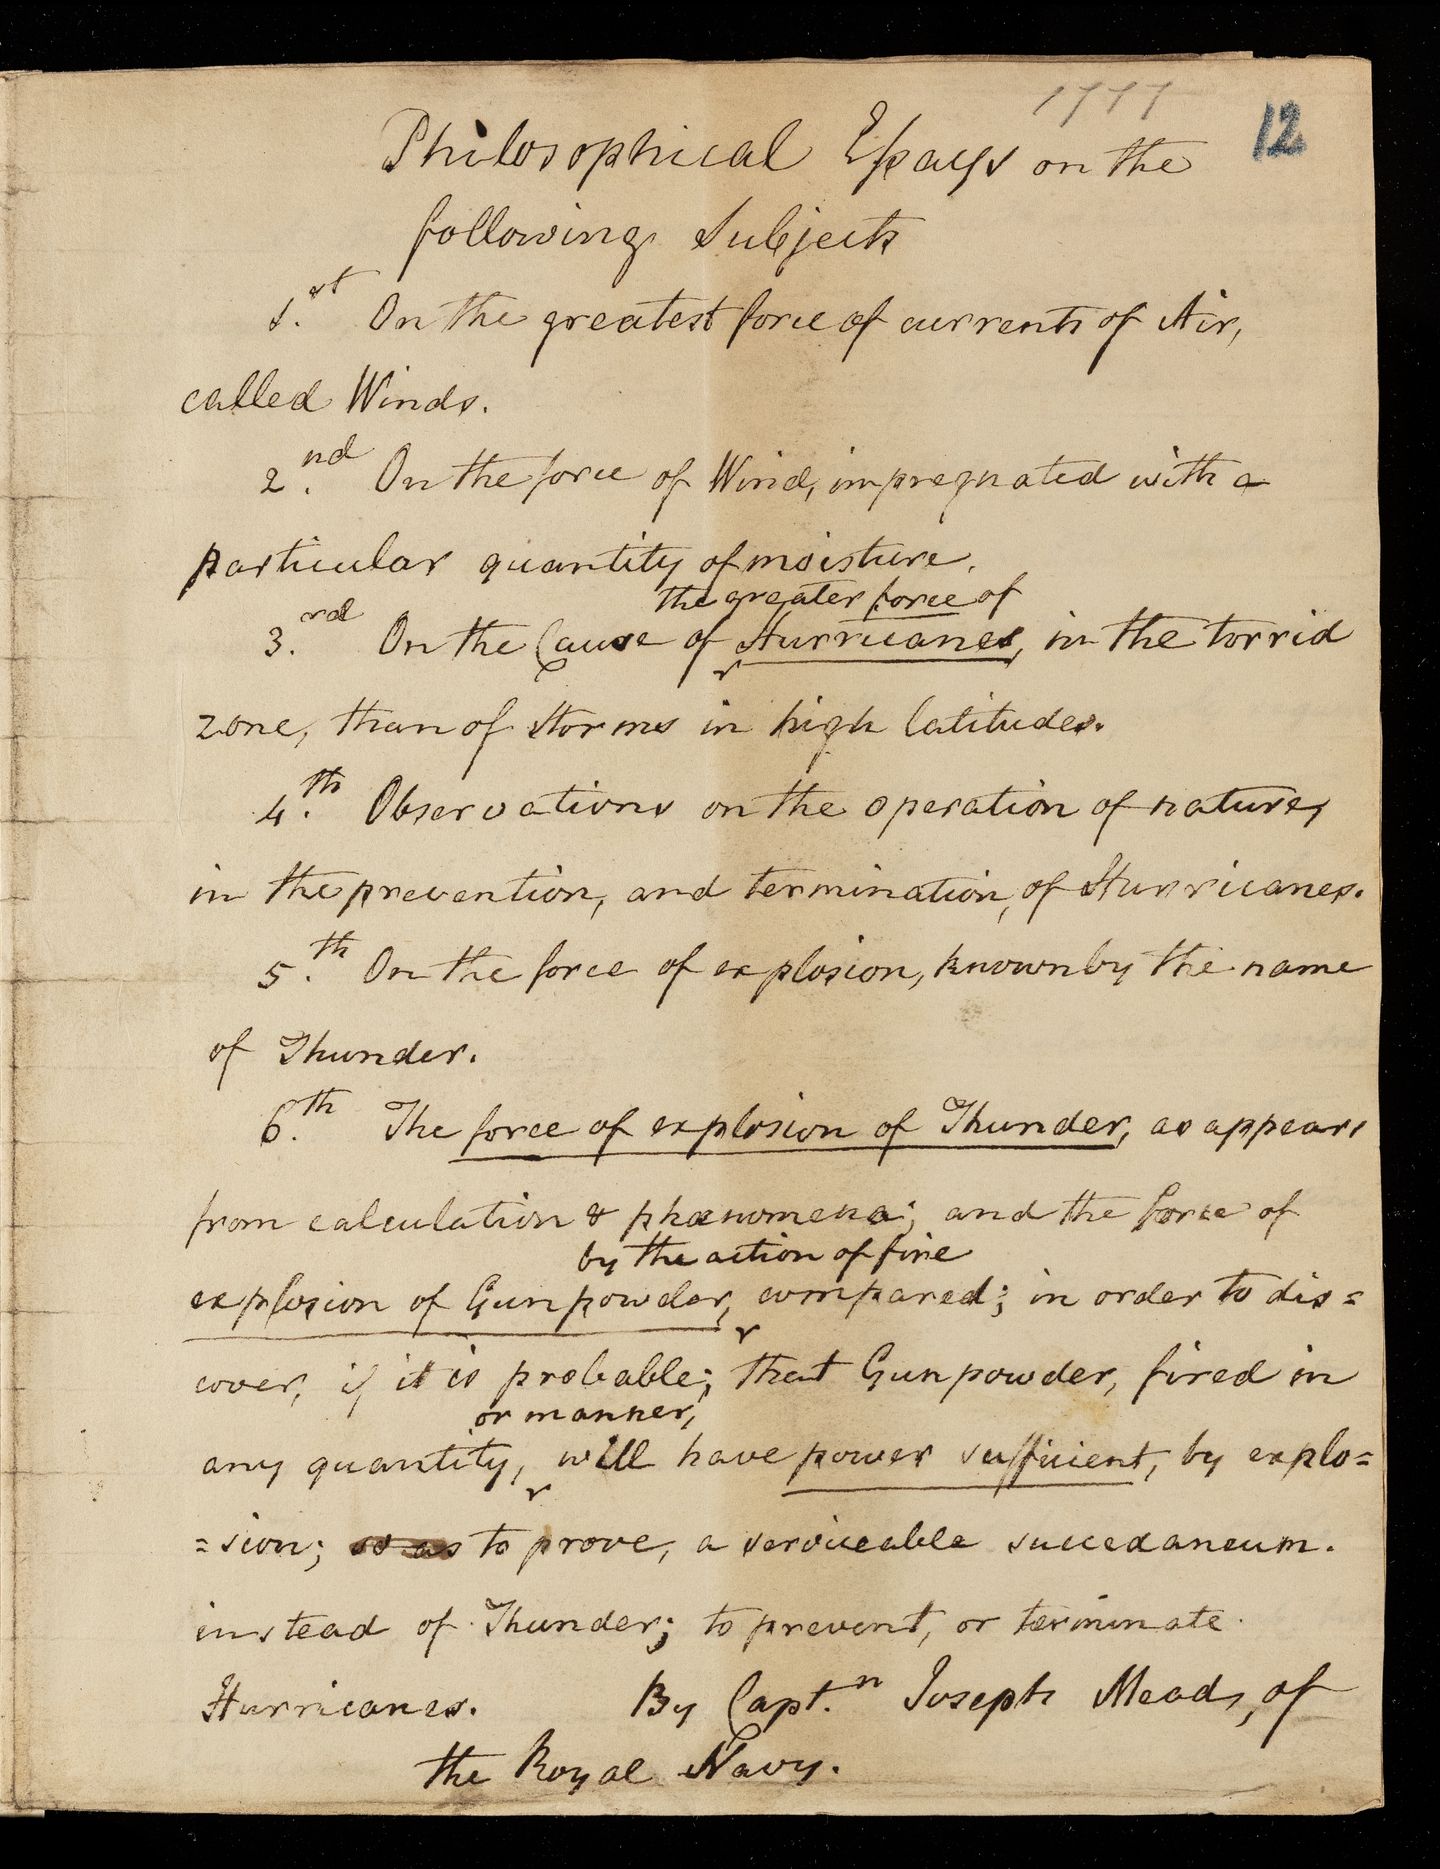 1777
12
Philosophical Essays on the
following Subjects
1.st On the greatest force of currents of Air,
called Winds.
2.nd On the force of Wind, impregnated with a
particular quantity of moisture.
the greater force of
3.rd On the Cause of Hurricanes, in the torrid
zone, than of storms in high latitudes.
4.th Observations on the operation of nature,
in the prevention, and termination, of Hurricanes.
5.th On the force of explosion, known by the name
of Thunder.
6.th The force of explosion of Thunder, as appears
from calculation & phænomena; and the force of
by the action of fire
explosion of Gunpowder, compared; in order to dis=
cover, if it is probable; that Gunpowder, fired in
or manner,
any quantity, will have power sufficient, by explo=
=sion; so as to prove, a serviceable succedaneum.
instead of Thunder; to prevent, or terminate
Hurricanes. By Capt.n Joseph Mead, of
the Royal Navy.